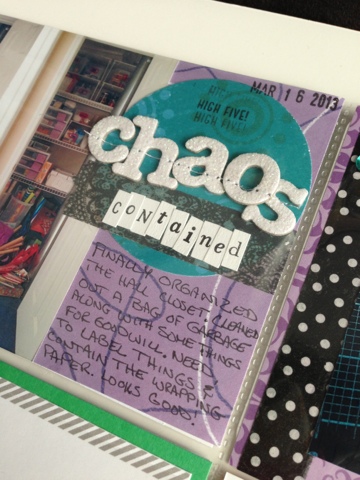 MAR 1 6 2013
HIGH FIVE!
HIGH FIVE!
HIGH FIVE!
chaos
contained
FINALLY ORGANIZED
THE HALL CLOSET. CLEANED
OUT A BAG OF GARBAGE
ALONG WITH SOME THINGS
FOR GOODWILL. NEED
TO LABEL THINGS &
CONTAIN THE WRAPPING
PAPER. LOOKS GOOD!